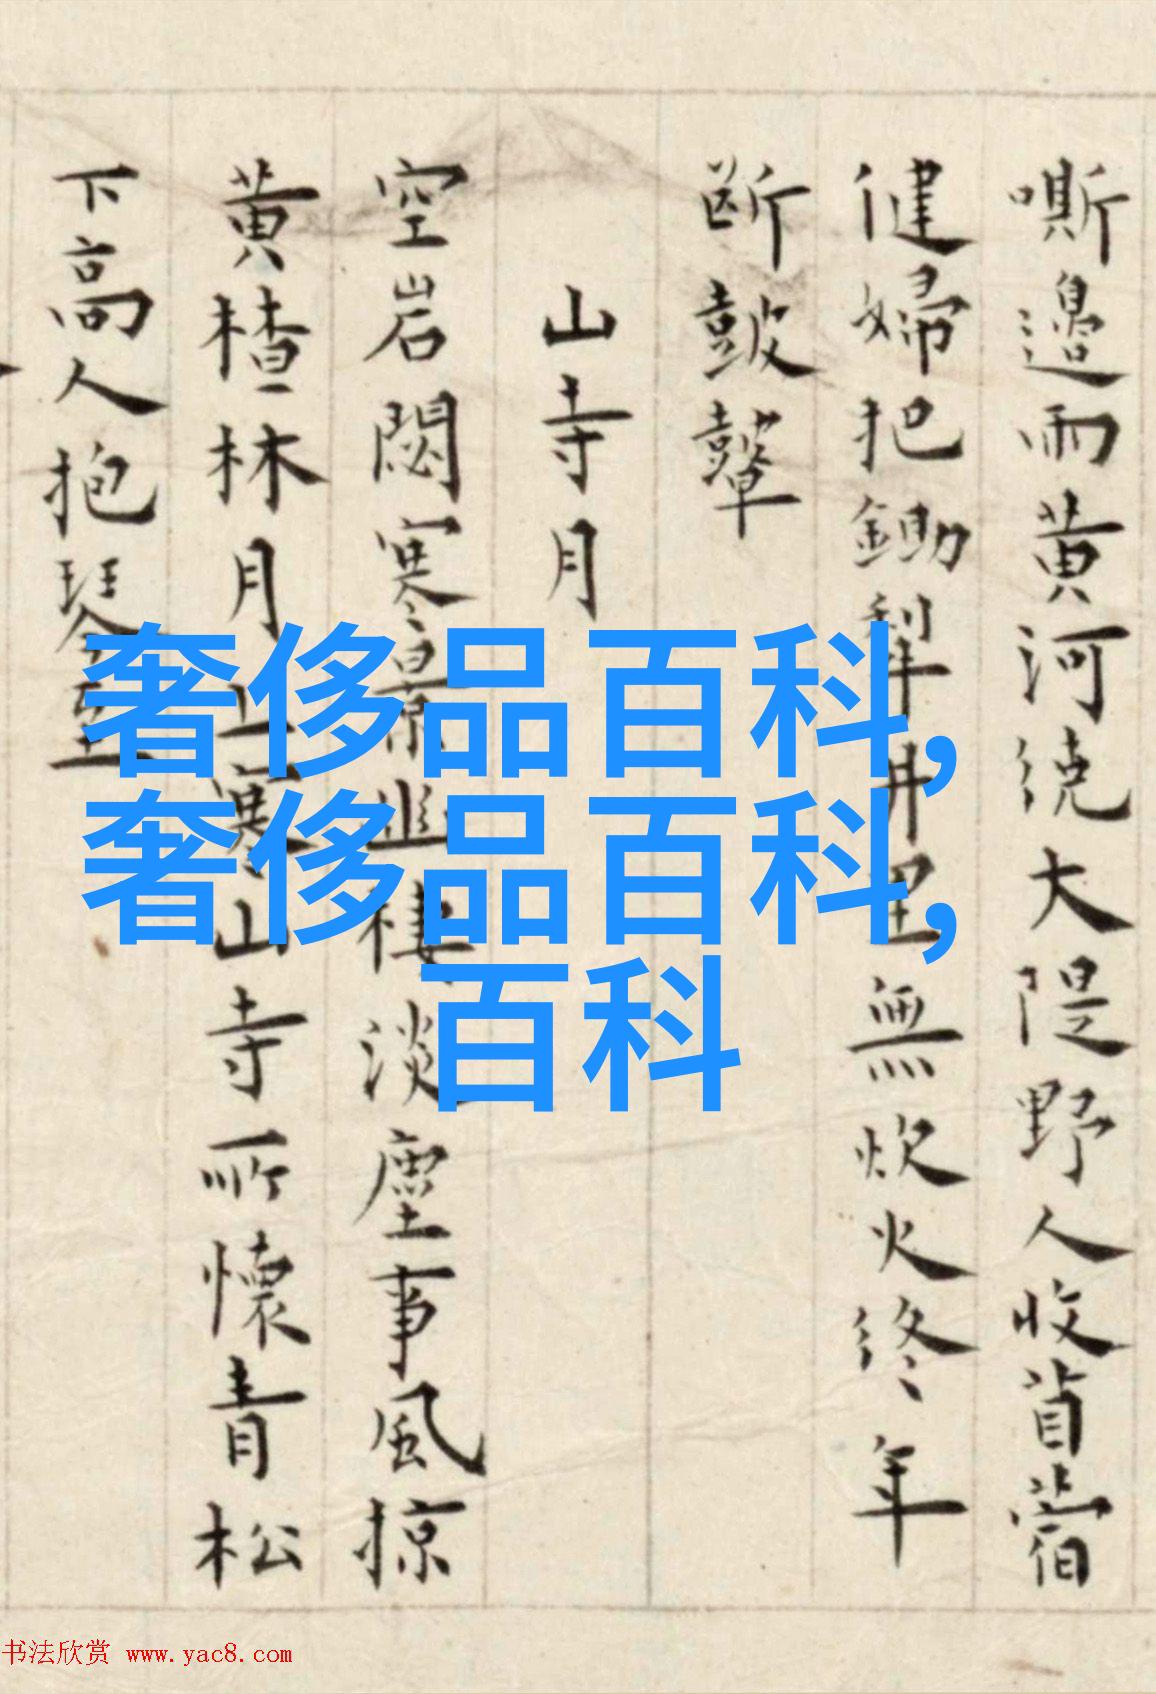 嘶邊雨黃河繞大隄野人收苜蓿
健婦把鋤犁井里無炊火終年
斷鼓鼙
山寺月
空岩閟寒景幽棲淡塵事風掠
黃楂林月上寒山寺所懷青松
下高人抱琴至
奢侈品百科,
奢侈品百科,
百科
书法欣赏 www.yac8.com